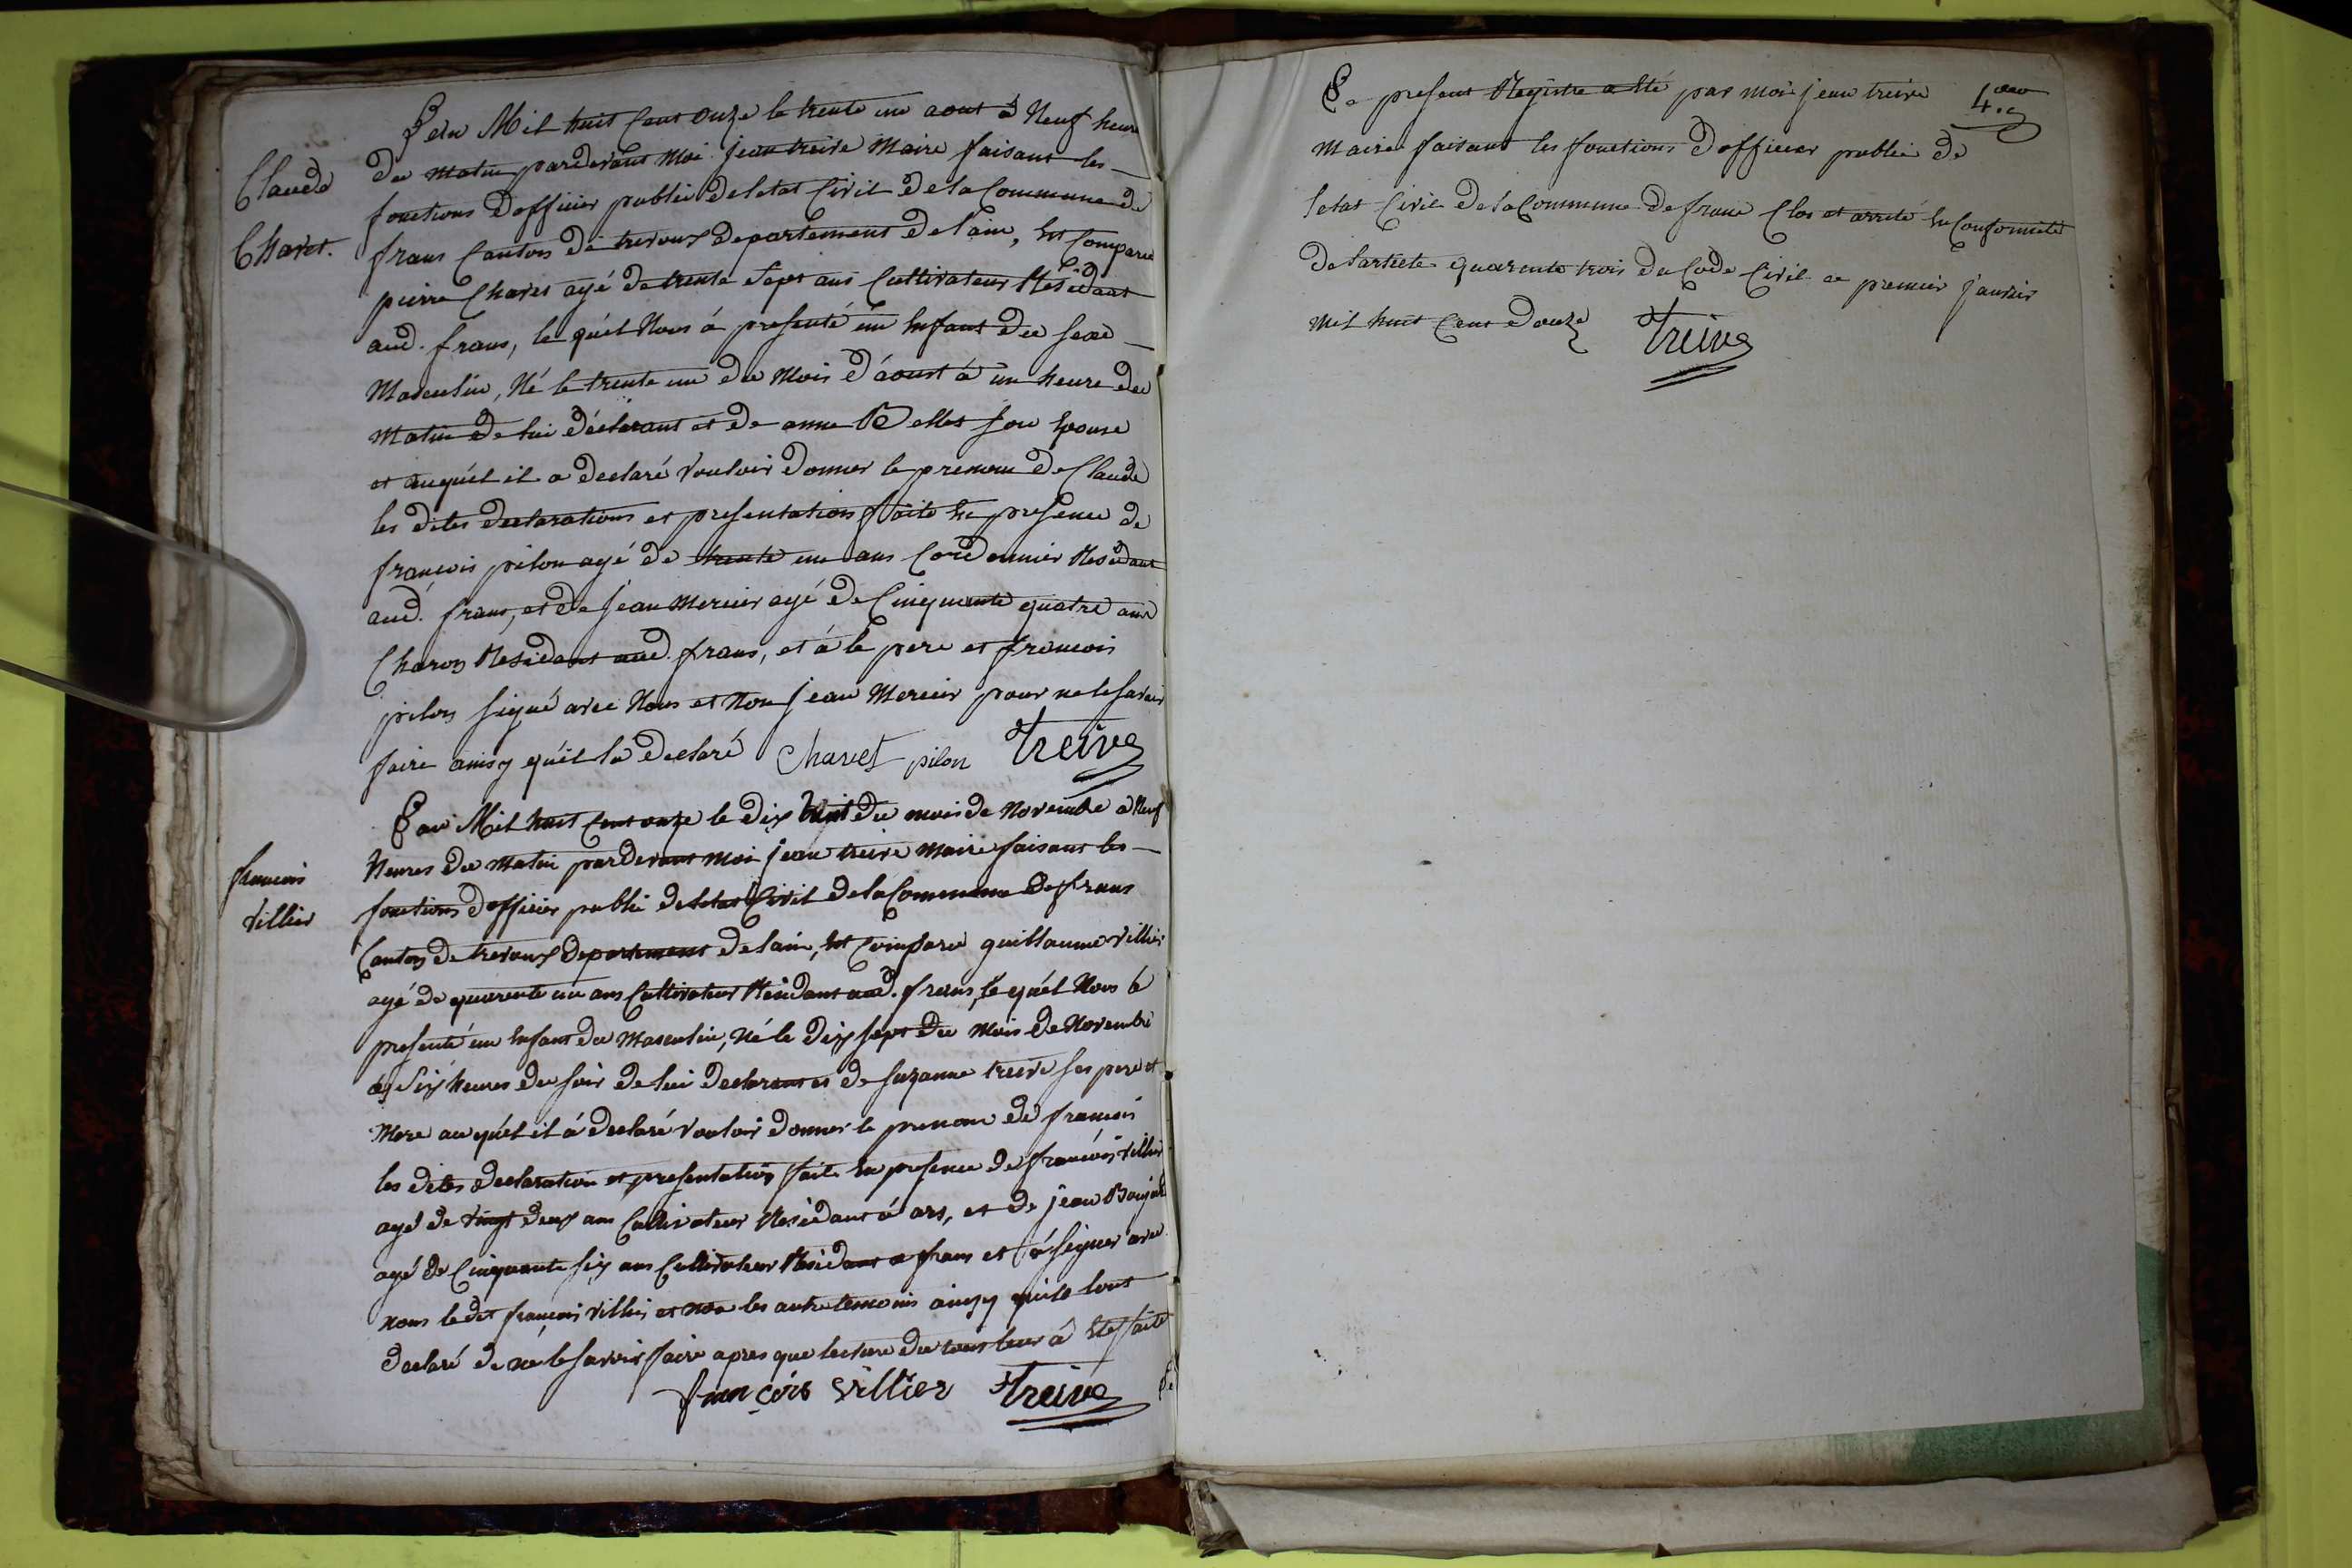 Claude
Charet.
L'an Mil huit Cent Onze le trente un aout à Neuf heure
du matin pardevant Moi jean treive Maire faisant les
fonctions d'officier public de letat Civil de la Commune de
frans Canton de trevoux departement de l'ain, est Comparu
pierre Charet agé de trente Sept ans Cultivateur Residant
aud. frans, le quél Nous á presenté un enfant du sexe
Masculin, Né le trente un du Mois d'áoust á un heure du
Matin de lui déclarant et de anne Bellet son Epouse
et auquél il a declaré Vouloir donner le prenom de Claude
les dites declarations et presentations faite en presence de
françois pilon agé de trente un ans Cordonnier Residant
aud. frans, et de jean Mercier agé de Cinquante quatre ans
Charon Residant aud. frans, et á le pere et francois
pilon signé avec Nous et Non jean Mercier pour ne le savoir
faire ainsy qu'il la declaré Charet pilon Treive
francois
Villier
L'an Mil huit Cent onze le dix huit du mois de Novembre a Neuf
heures du matin pardevant moi jean treive maire faisant les
fonctions d'officier public de letat Civil de la Commune de frans
Canton de trevoux departement de lain, est Comparu guillaume Villier
agé de quarente un ans Cultivateur Residant aud. frans, le quél Nous á
presenté un enfant du Masculin, né le dix sept du Mois de Novembre
á Six heures du soir de lui declarant et de suzanne treive ses pere et
Mere au quél il á declaré Vouloir donner le prenom de francois
les dites declaration et presentation faite en presence de francois Villier
agé de vingt deux ans Cultivateur Residant á ars, et de jean
agé de Cinquante six ans Cultivateur Residant a frans et á signer avec
nous le dit françois Villier et non les autre temoins ainsy quils lont
declaré de ne le savoir faire apres que lecture du tous leur á Eté faite
françois Villier Treive
4.eme
Le present Registre a Eté par moi jean treive
maire faisant les fonctions d'officier public de
letat Civil de la Commune de frans Clos et arreté en Conformité
de l'article quarente trois du Code Civil ce premier janvier
mil huit Cent douze Treive